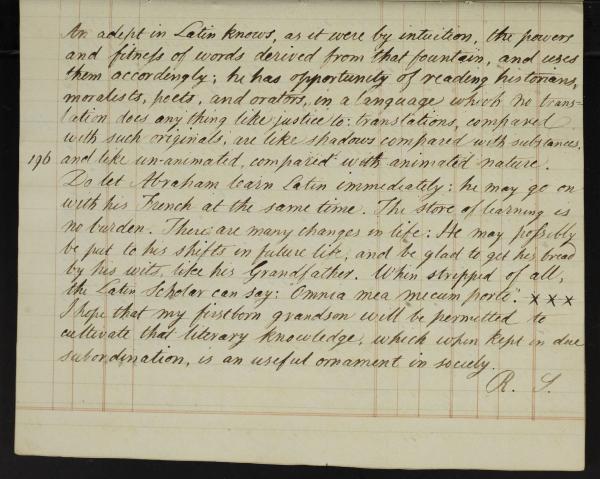 An adept in Latin knows, as it were by intuition, the powers
and fitness of words derived from that fountain, and uses
them accordingly; he has opportunity of reading historians,
moralists, poets, and orators, in a language which no trans=
lation does any thing like justice to: translations, compared
with such originals, are like shadows compared with substances,
196 and like un-animated, compared with animated nature.
Do let Abraham learn Latin immediately: he may go on
with his French at the same time. The store of learning is
no burden. There are many changes in life: He may possibly
be put to his shifts in future life, and be glad to get his bread
by his wits, like his Grandfather. When stripped of all,
the Latin Scholar can say: "Omnia mea mecum porto". x x x
I hope that my firstborn grandson will be permitted to
cultivate that literary knowledge, which when kept in due
subordination, is an useful ornament in society.
R. S.